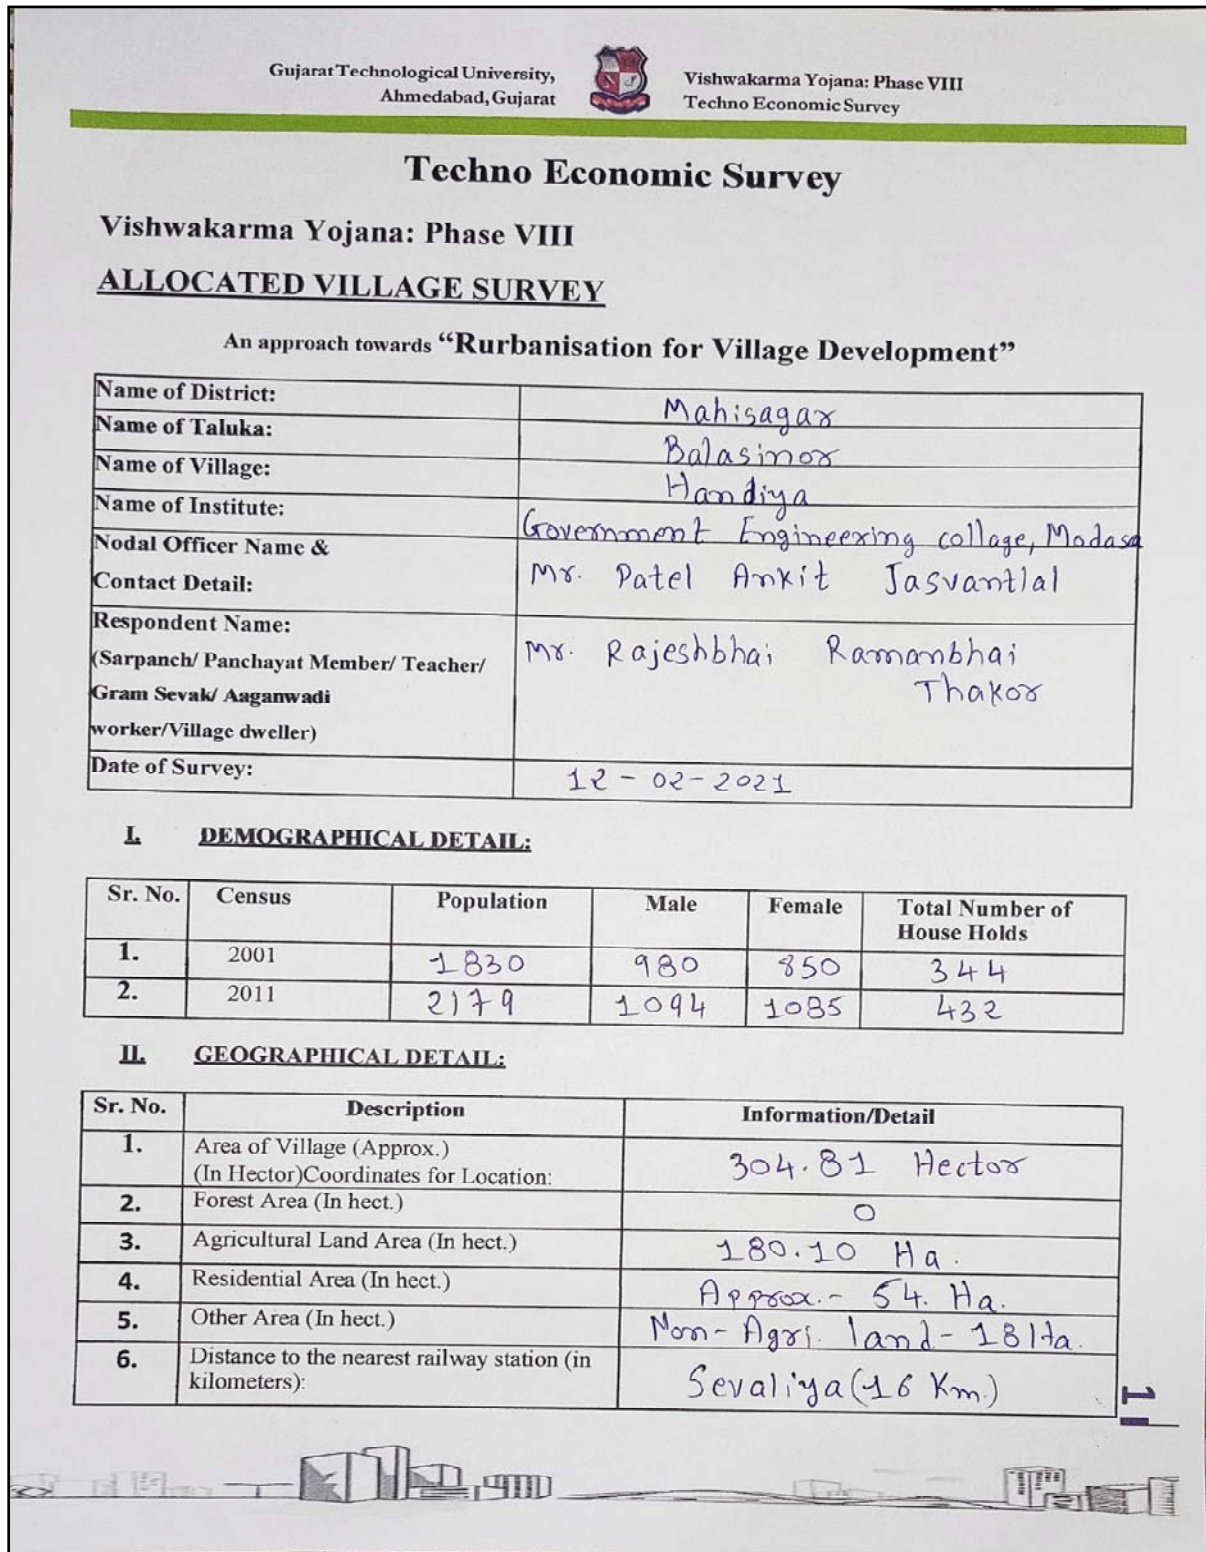 Gujarat Technological University,
Ahmedabad, Gujarat
Vishwakarma Yojana: Phase VIII
Techno Economic Survey
Techno Economic Survey
Vishwakarma Yojana: Phase VIII
ALLOCATED VILLAGE SURVEY
An approach towards “Rurbanisation for Village Development”
Name of District: Mahisagar
Name of Taluka: Balasinor
Name of Village: Handiya
Name of Institute: Government Engineering collage, Modasa
Nodal Officer Name &
Contact Detail: Mr. Patel Ankit Jasvantlal
Respondent Name:
(Sarpanch/ Panchayat Member/ Teacher/ Mr. Rajeshbhai Ramanbhai
Gram Sevak/ Aaganwadi Thakor
worker/Village dweller)
Date of Survey: 12-02-2021
I. DEMOGRAPHICAL DETAIL:
Sr. No. Census Population Male Female Total Number of
House Holds
1. 2001 1830 980 850 344
2. 2011 2179 1094 1085 432
II. GEOGRAPHICAL DETAIL:
Sr. No. Description Information/Detail
1. Area of Village (Approx.)
(In Hector)Coordinates for Location: 304.81 Hector
2. Forest Area (In hect.) 0
3. Agricultural Land Area (In hect.) 180.10 Ha.
4. Residential Area (In hect.) Approx.- 54. Ha.
5. Other Area (In hect.) Non-Agri. land-18 Ha.
6. Distance to the nearest railway station (in
kilometers): Sevaliya (16 Km.)